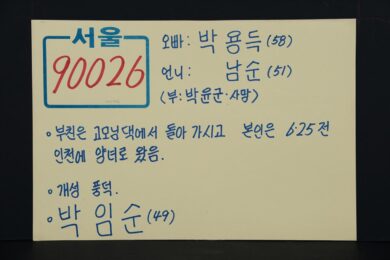 서울
90026
오빠: 박용득(58)
언니: 남순(51)
(부: 박윤군·사망)
• 부친은 고모님댁에서 돌아가시고 본인은 6·25전
인천에 양녀로 왔음.
• 개성 풍덕.
• 박임순(49)